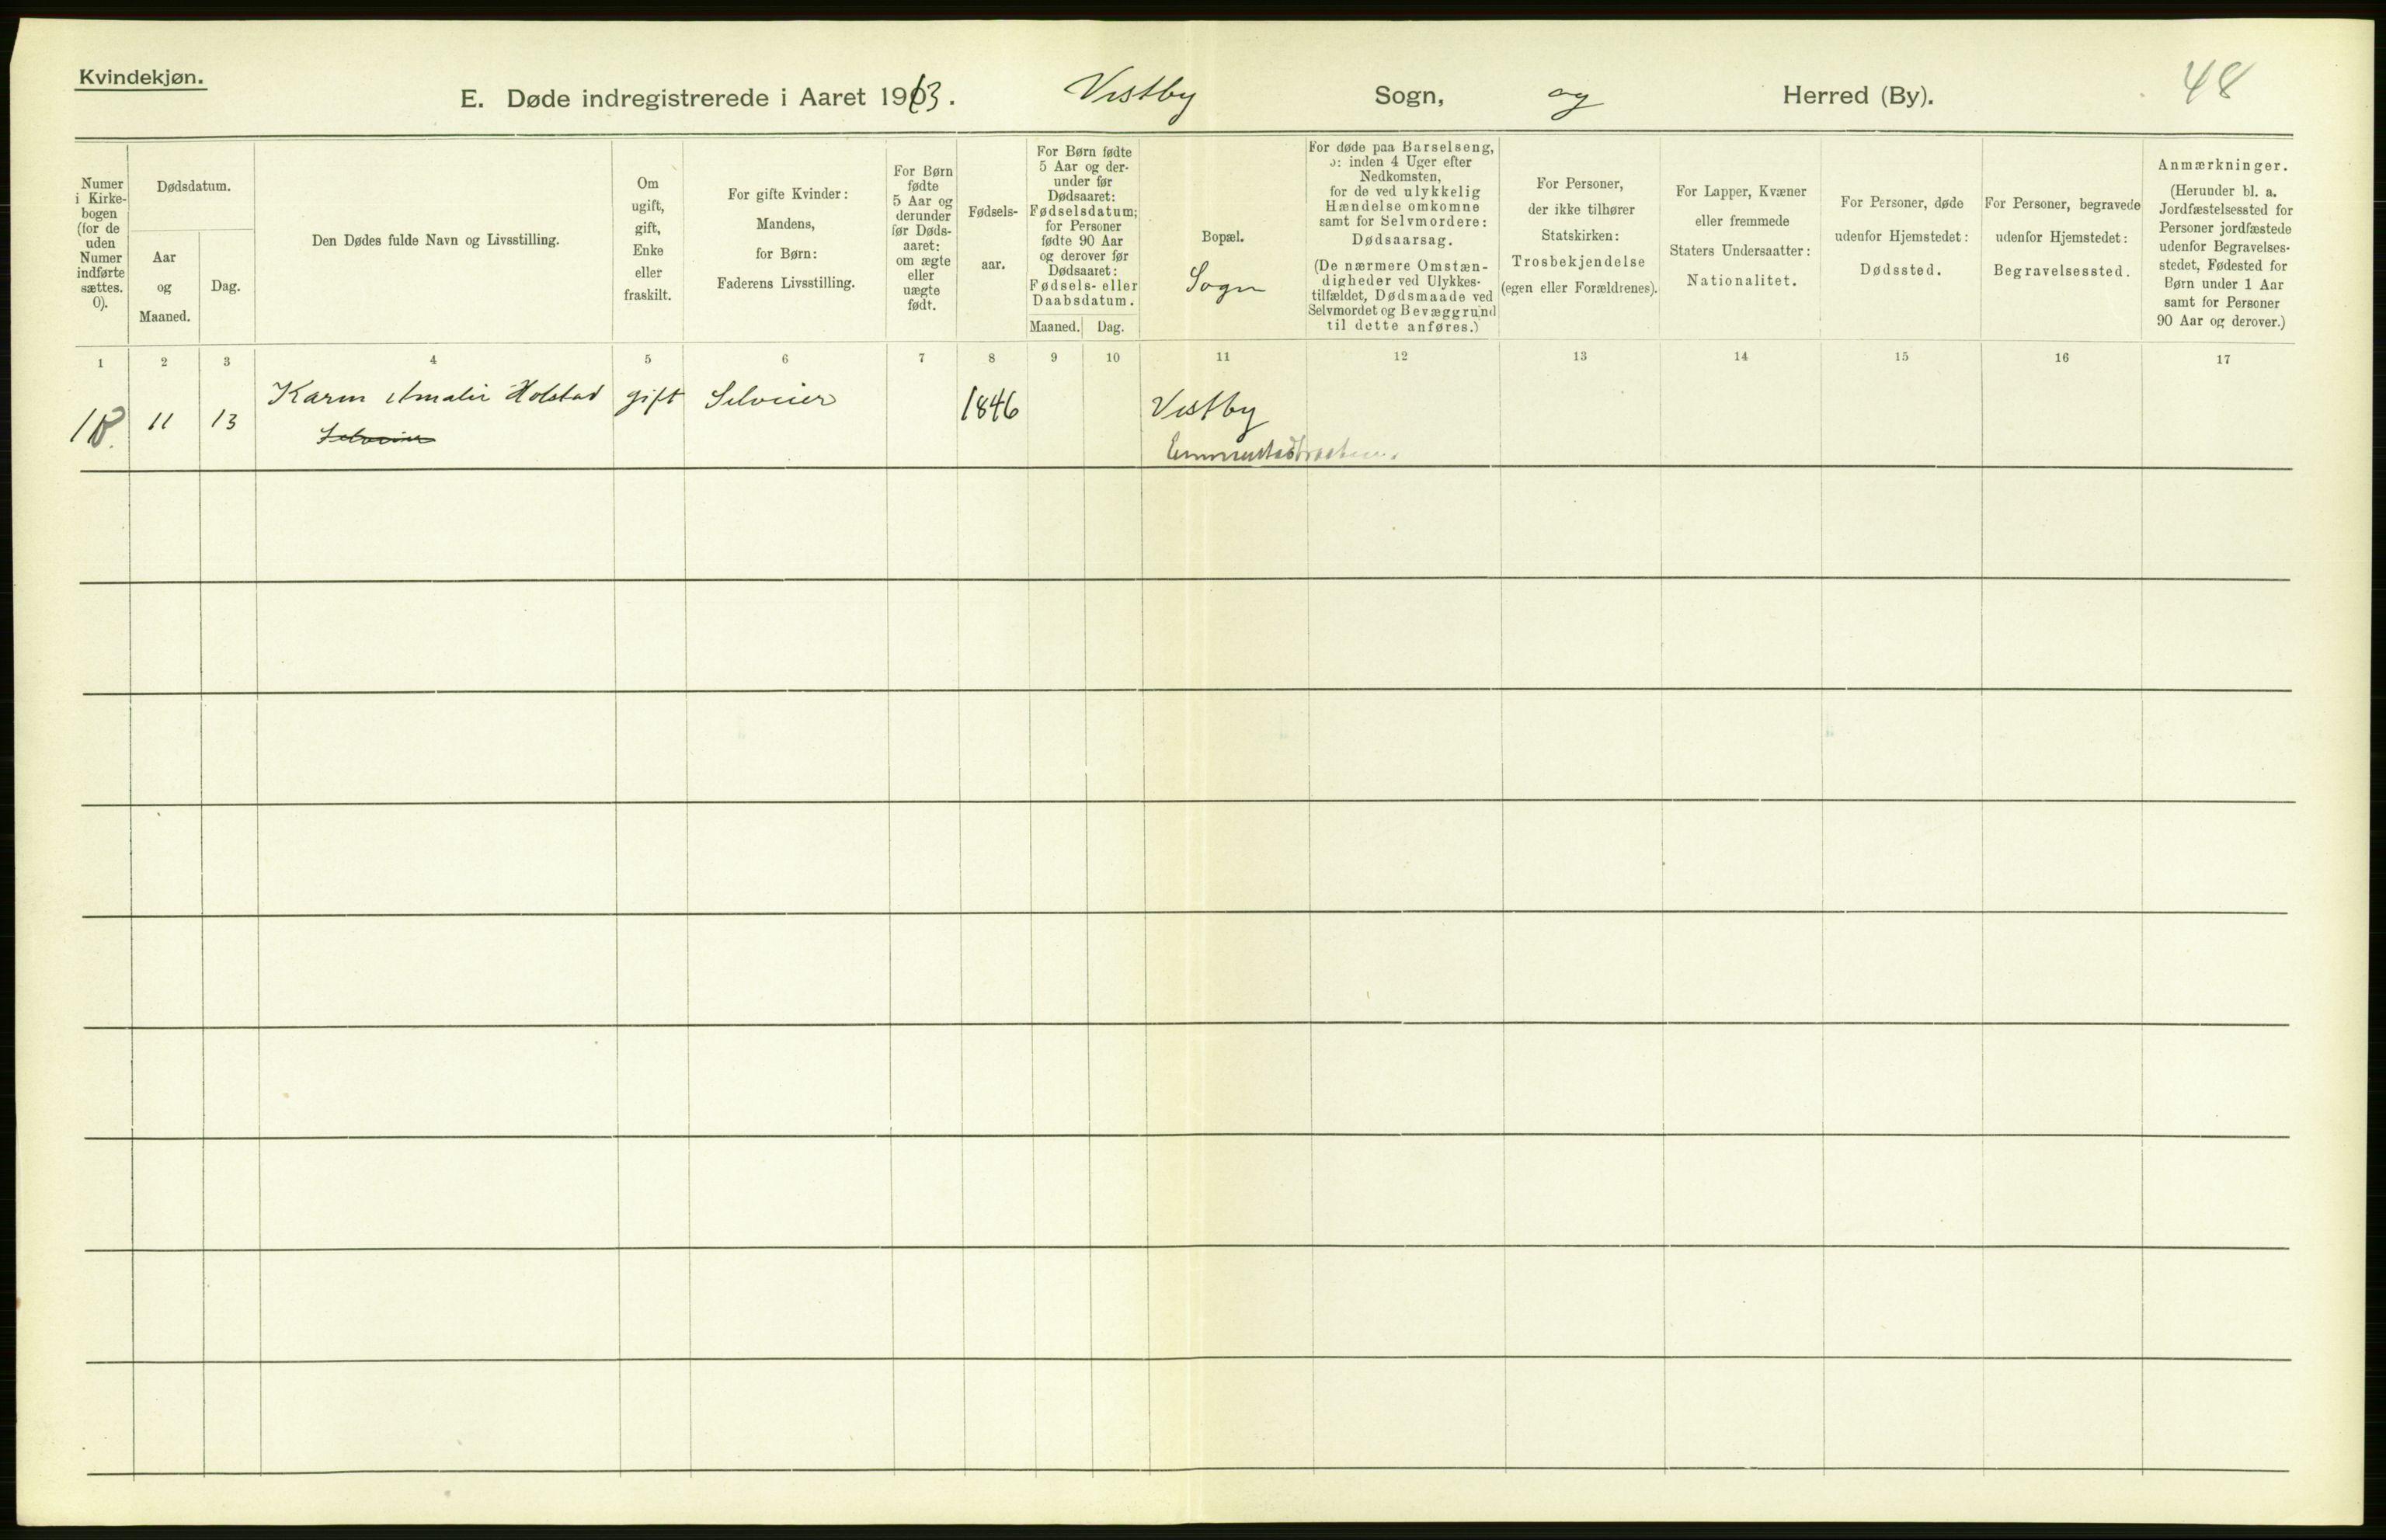 Kvindekjøn.
E. Døde indregistrerede i Aaret 1903. Vestby Sogn, og Herred (By). 48
Numer i Kirke-bogen (for de uden Numer indførte sættes. 0).
Dødsdatum.
Aar og Maaned.
Dag.
Den Dødes fulde Navn og Livsstilling.
Om ugift, gift, Enke eller fraskilt.
For gifte Kvinder: Mandens, for Børn: Faderens Livsstilling.
For Børn fødte 5 Aar og derunder før Døds-aaret: om ægte eller uægte født.
Fødsels-aar.
For Børn fødte 5 Aar og der-under før Dødsaaret: Fødselsdatum; for Personer fødte 90 Aar og derover før Dødsaaret: Fødsels- eller Daabsdatum.
Maaned. Dag.
Bopæl.
Sogn
For døde paa Barselseng, ɔ: inden 4 Uger efter Nedkomsten, for de ved ulykkelig Hændelse omkomne samt for Selvmordere: Dødsaarsag. (De nærmere Omstæn-digheder ved Ulykkes-tilfældet, Dødsmaade ved Selvmordet og Bevæggrund til dette anføres.)
For Personer, der ikke tilhører Statskirken: Trosbekjendelse (egen eller Forældrenes).
For Lapper, Kvæner eller fremmede Staters Undersaatter: Nationalitet.
For Personer, døde udenfor Hjemstedet: Dødssted.
For Personer, begravede udenfor Hjemstedet: Begravelsessted.
Anmærkninger. (Herunder bl. a. Jordfæstelsessted for Personer jordfæstede udenfor Begravelses-stedet, Fødested for Børn under 1 Aar samt for Personer 90 Aar og derover.)
1 2 3 4 5 6 7 8 9 10 11 12 13 14 15 16 17
18. 11 13 Karen Amalie Holstad gift Selveier 1846 Vestby
Selveier